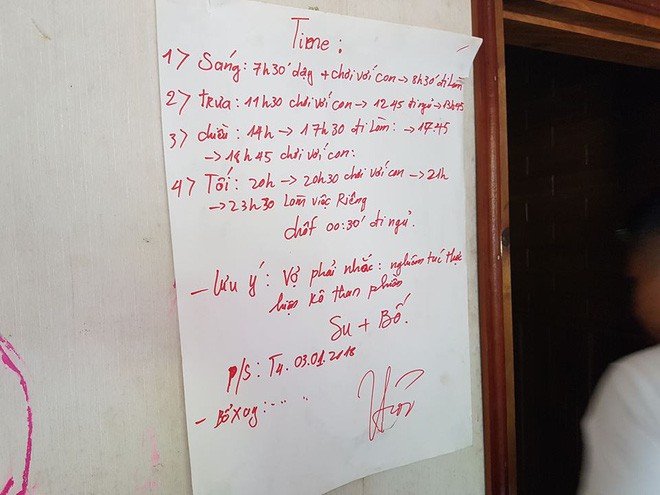 Time:
1> Sáng: 7h30' dậy + chơi với con → 8h30' đi làm
2> trưa: 11h30 chơi với con → 12 45 đi ngủ → 13h45
3> chiều: 14h → 17h30 đi làm: → 17.45
→ 18h45 chơi với con:
4> Tối: 20h → 20h30 chơi với con → 21h
→ 23h30 Làm việc Riêng
chốt 00:30' đi ngủ.
- Lưu ý: Vợ phải nhắc: nghiêm túc thực
hiện kô than phiền
Su + Bố.
P/S: T4. 03.01.2018